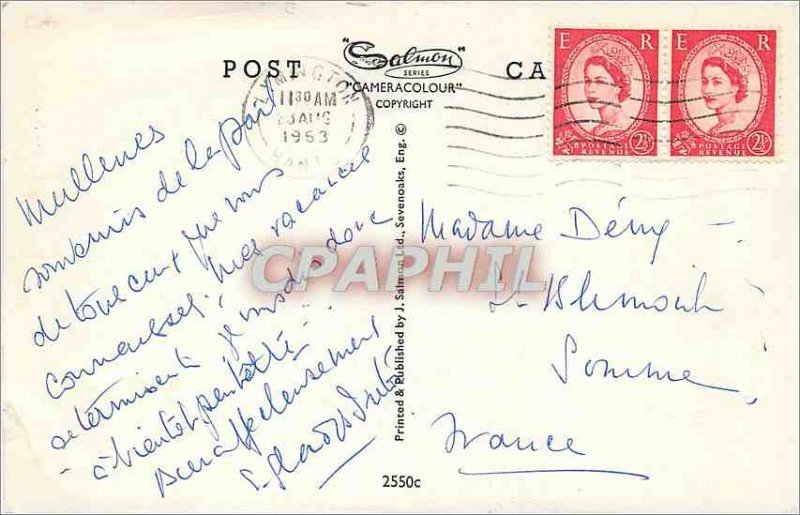 POST CA
"Salmon"
SERIES
"CAMERACOLOUR"
COPYRIGHT
LYMINGTON
11 30 AM
AUG
1963
HANTS
E R
E R
POSTAGE 2½
REVENUE
POSTAGE 2½
REVENUE
souvenirs de la part
de tous ceux que vous
connaissez. mes vacances
se terminent je vous dis donc
à bientôt peut être
bien affectueusement
Madame Démy
St Blimont
Somme
France
CPAPHIL
Printed & Published by J. Salmon Ltd., Sevenoaks, Eng. ©
2550c